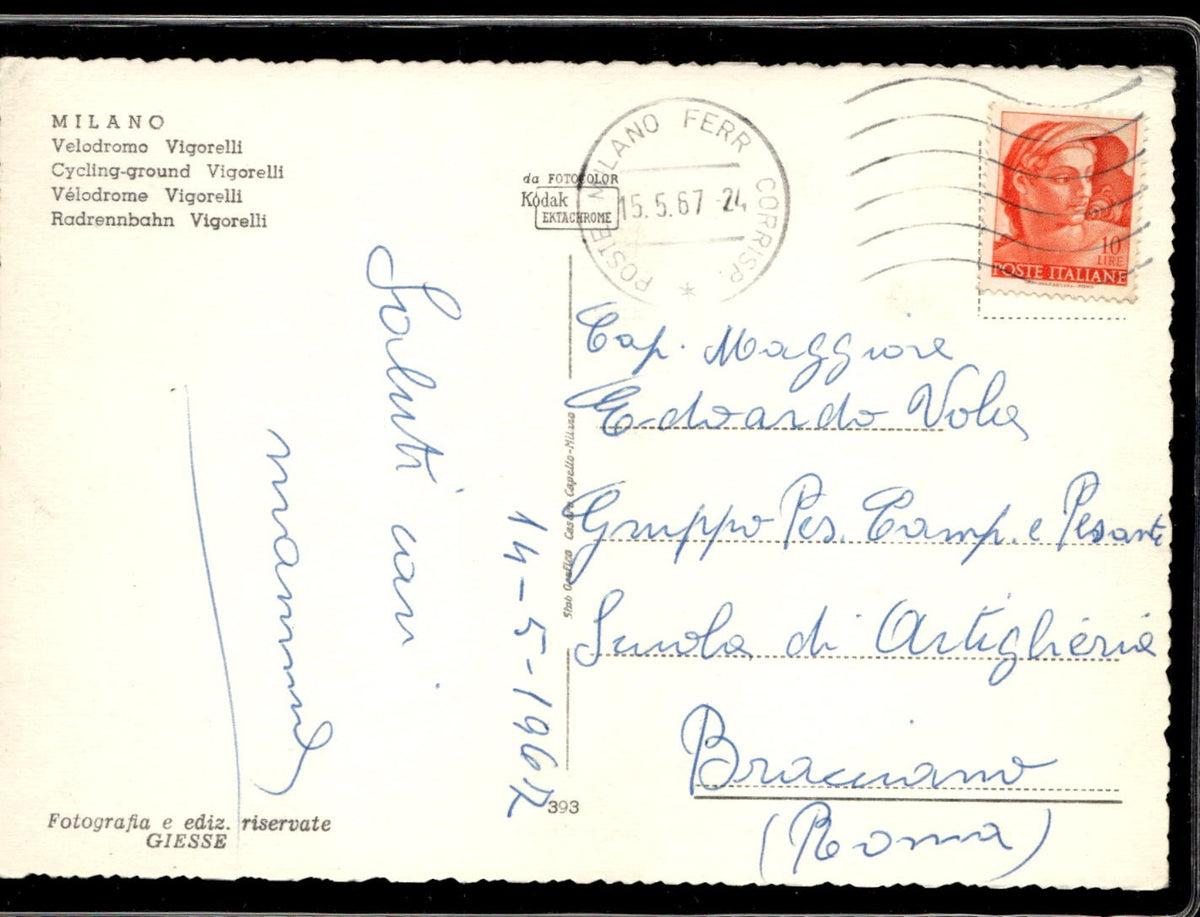 MILANO
Velodromo Vigorelli
Cycling-ground Vigorelli
Vélodrome Vigorelli
Radrennbahn Vigorelli
da FOTOCOLOR
Kodak
EKTACHROME
POSTE MILANO FERR CORRISP.
15.5.67-24
10
LIRE
POSTE ITALIANE
Saluti cari
14-5-1967
Cap. Maggiore
Edoardo Vola
Gruppo Pes. Camp. e Pesante
Scuola di Artiglieria
Bracciano
(Roma)
Stab Grafico Cesare Capello-Milano
393
Fotografia e ediz. riservate
GIESSE